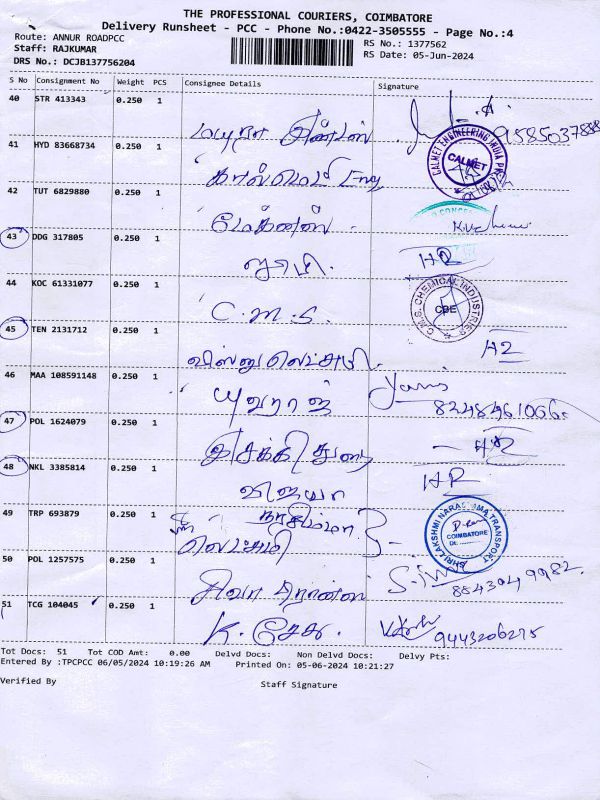 THE PROFESSIONAL COURIERS, COIMBATORE
Delivery Runsheet - PCC - Phone No.:0422-3505555 - Page No.:4
Route: ANNUR ROADPCC
RS No.: 1377562
Staff: RAJKUMAR
RS Date: 05-Jun-2024
DRS No.: DCJB137756204
S No Consignment No Weight PCS Consignee Details Signature
40 STR 413343 0.250 1
9585037888
41 HYD 83668734 0.250 1 Eng
CALMET ENGINEERING INDIA
CALMET
42 TUT 6829880 0.250 1
43 DDG 317805 0.250 1 HR
44 KOC 61331077 0.250 1 C.M.S.
C.M.S. CHEMICAL INDUSTRIES
CBE
45 TEN 2131712 0.250 1 விஸ்னு லெட்சுமி.
46 MAA 108591148 0.250 1 யுவராஜ்
47 POL 1624079 0.250 1 இசக்கி துரை
48 NKL 3385814 0.250 1 விஜயா HR
49 TRP 693879 0.250 1 நரசிம்மா
லெட்சுமி
SHRI LAKSHMI NARASIMMA TRANSPORT
COIMBATORE
50 POL 1257575 0.250 1 சிவா
8843049982
51 TCG 104045 0.250 1 K. சேகர்.
9443206275
Tot Docs: 51 Tot COD Amt: 0.00 Delvd Docs: Non Delvd Docs: Delvy Pts:
Entered By :TPCPCC 06/05/2024 10:19:26 AM Printed On: 05-06-2024 10:21:27
Verified By Staff Signature